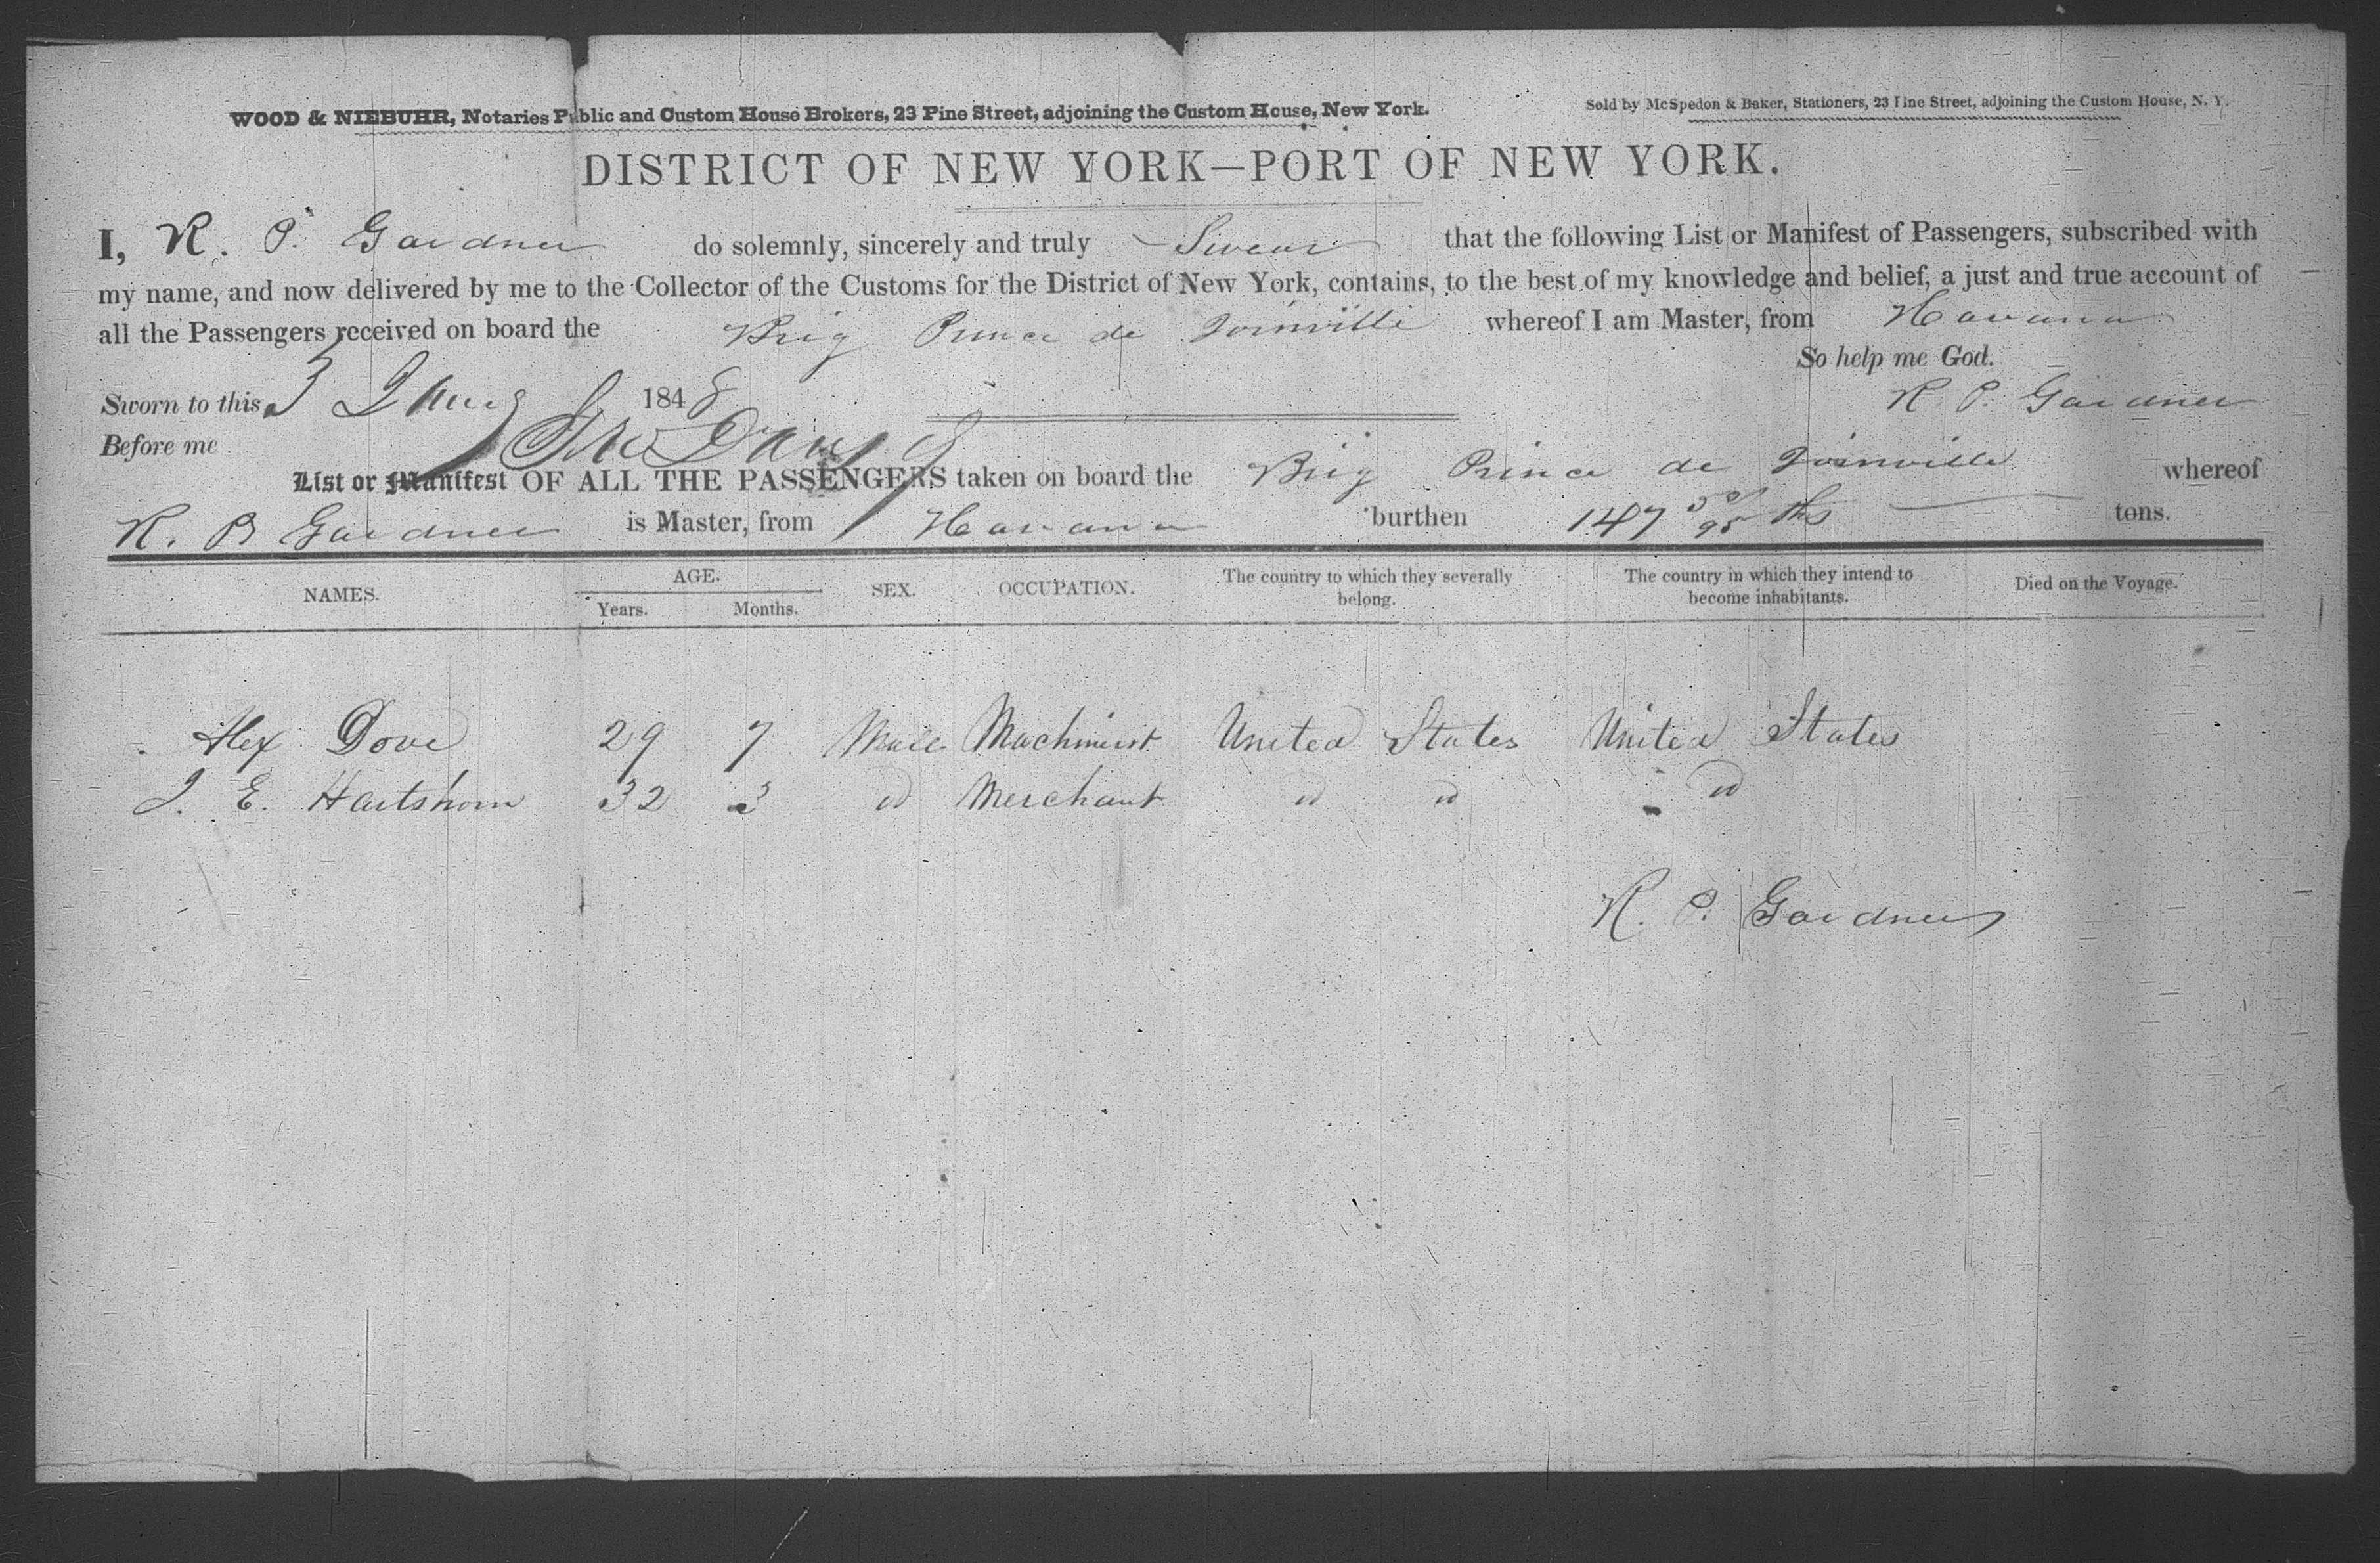 WOOD & NIEBUHR, Notaries Public and Custom House Brokers, 23 Pine Street, adjoining the Custom House, New York.
Sold by McSpedon & Baker, Stationers, 23 Pine Street, adjoining the Custom House, N. Y.
DISTRICT OF NEW YORK—PORT OF NEW YORK.
I, R. P. Gardner do solemnly, sincerely and truly Swear that the following List or Manifest of Passengers, subscribed with
my name, and now delivered by me to the Collector of the Customs for the District of New York, contains, to the best of my knowledge and belief, a just and true account of
all the Passengers received on board the Brig Prince de Joinville whereof I am Master, from Havana
So help me God.
Sworn to this 3 1848 R P. Gardner
Before me
List or Manifest OF ALL THE PASSENGERS taken on board the Brig Prince de Joinville whereof
R. P Gardner is Master, from Havana burthen 147 95 ths tons.
NAMES. AGE. SEX. OCCUPATION. The country to which they severally belong. The country in which they intend to become inhabitants. Died on the Voyage.
Years. Months.
Alex Dove 29 7 Male Machinist United States United States
J. E. Hartshorn 32 3 id Merchant id id id
R. P. Gardner